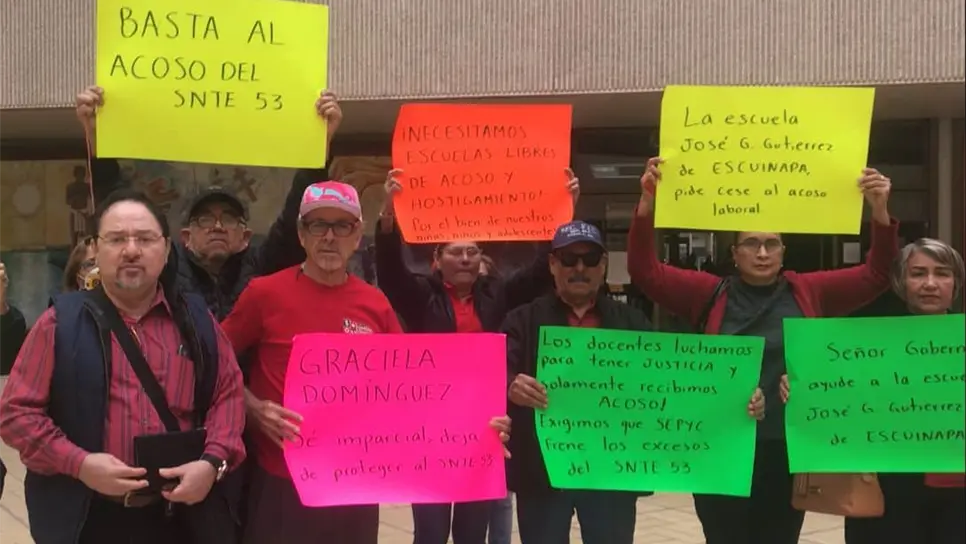 BASTA AL
ACOSO DEL
SNTE 53
¡NECESITAMOS
ESCUELAS LIBRES
DE ACOSO Y
HOSTIGAMIENTO!
Por el bien de nuestros
niñas, niños y adolescentes
La escuela
José G. Gutierrez
de ESCUINAPA,
pide cese al acoso
laboral.
GRACIELA
DOMÍNGUEZ
Sé imparcial, deja
de proteger al SNTE 53
Los docentes luchamos
para tener JUSTICIA y
solamente recibimos
ACOSO!
Exigimos que SEPYC
frene los excesos
del SNTE 53
Señor Gobern
ayude a la escue
José G. Gutierrez
de ESCUINAPA